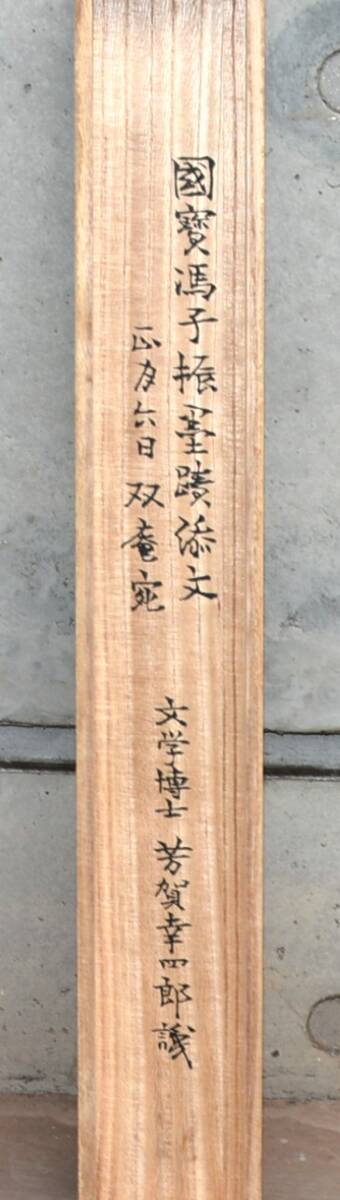 國寶馮子振墨蹟添文
正月六日 双菴宛
文学博士 芳賀幸四郎識